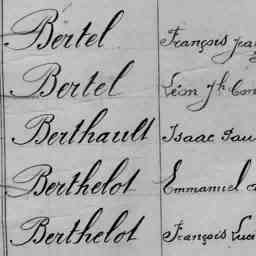 Bertel François
Bertel Léon
Berthault Isaac
Berthelot Emmanuel
Berthelot François